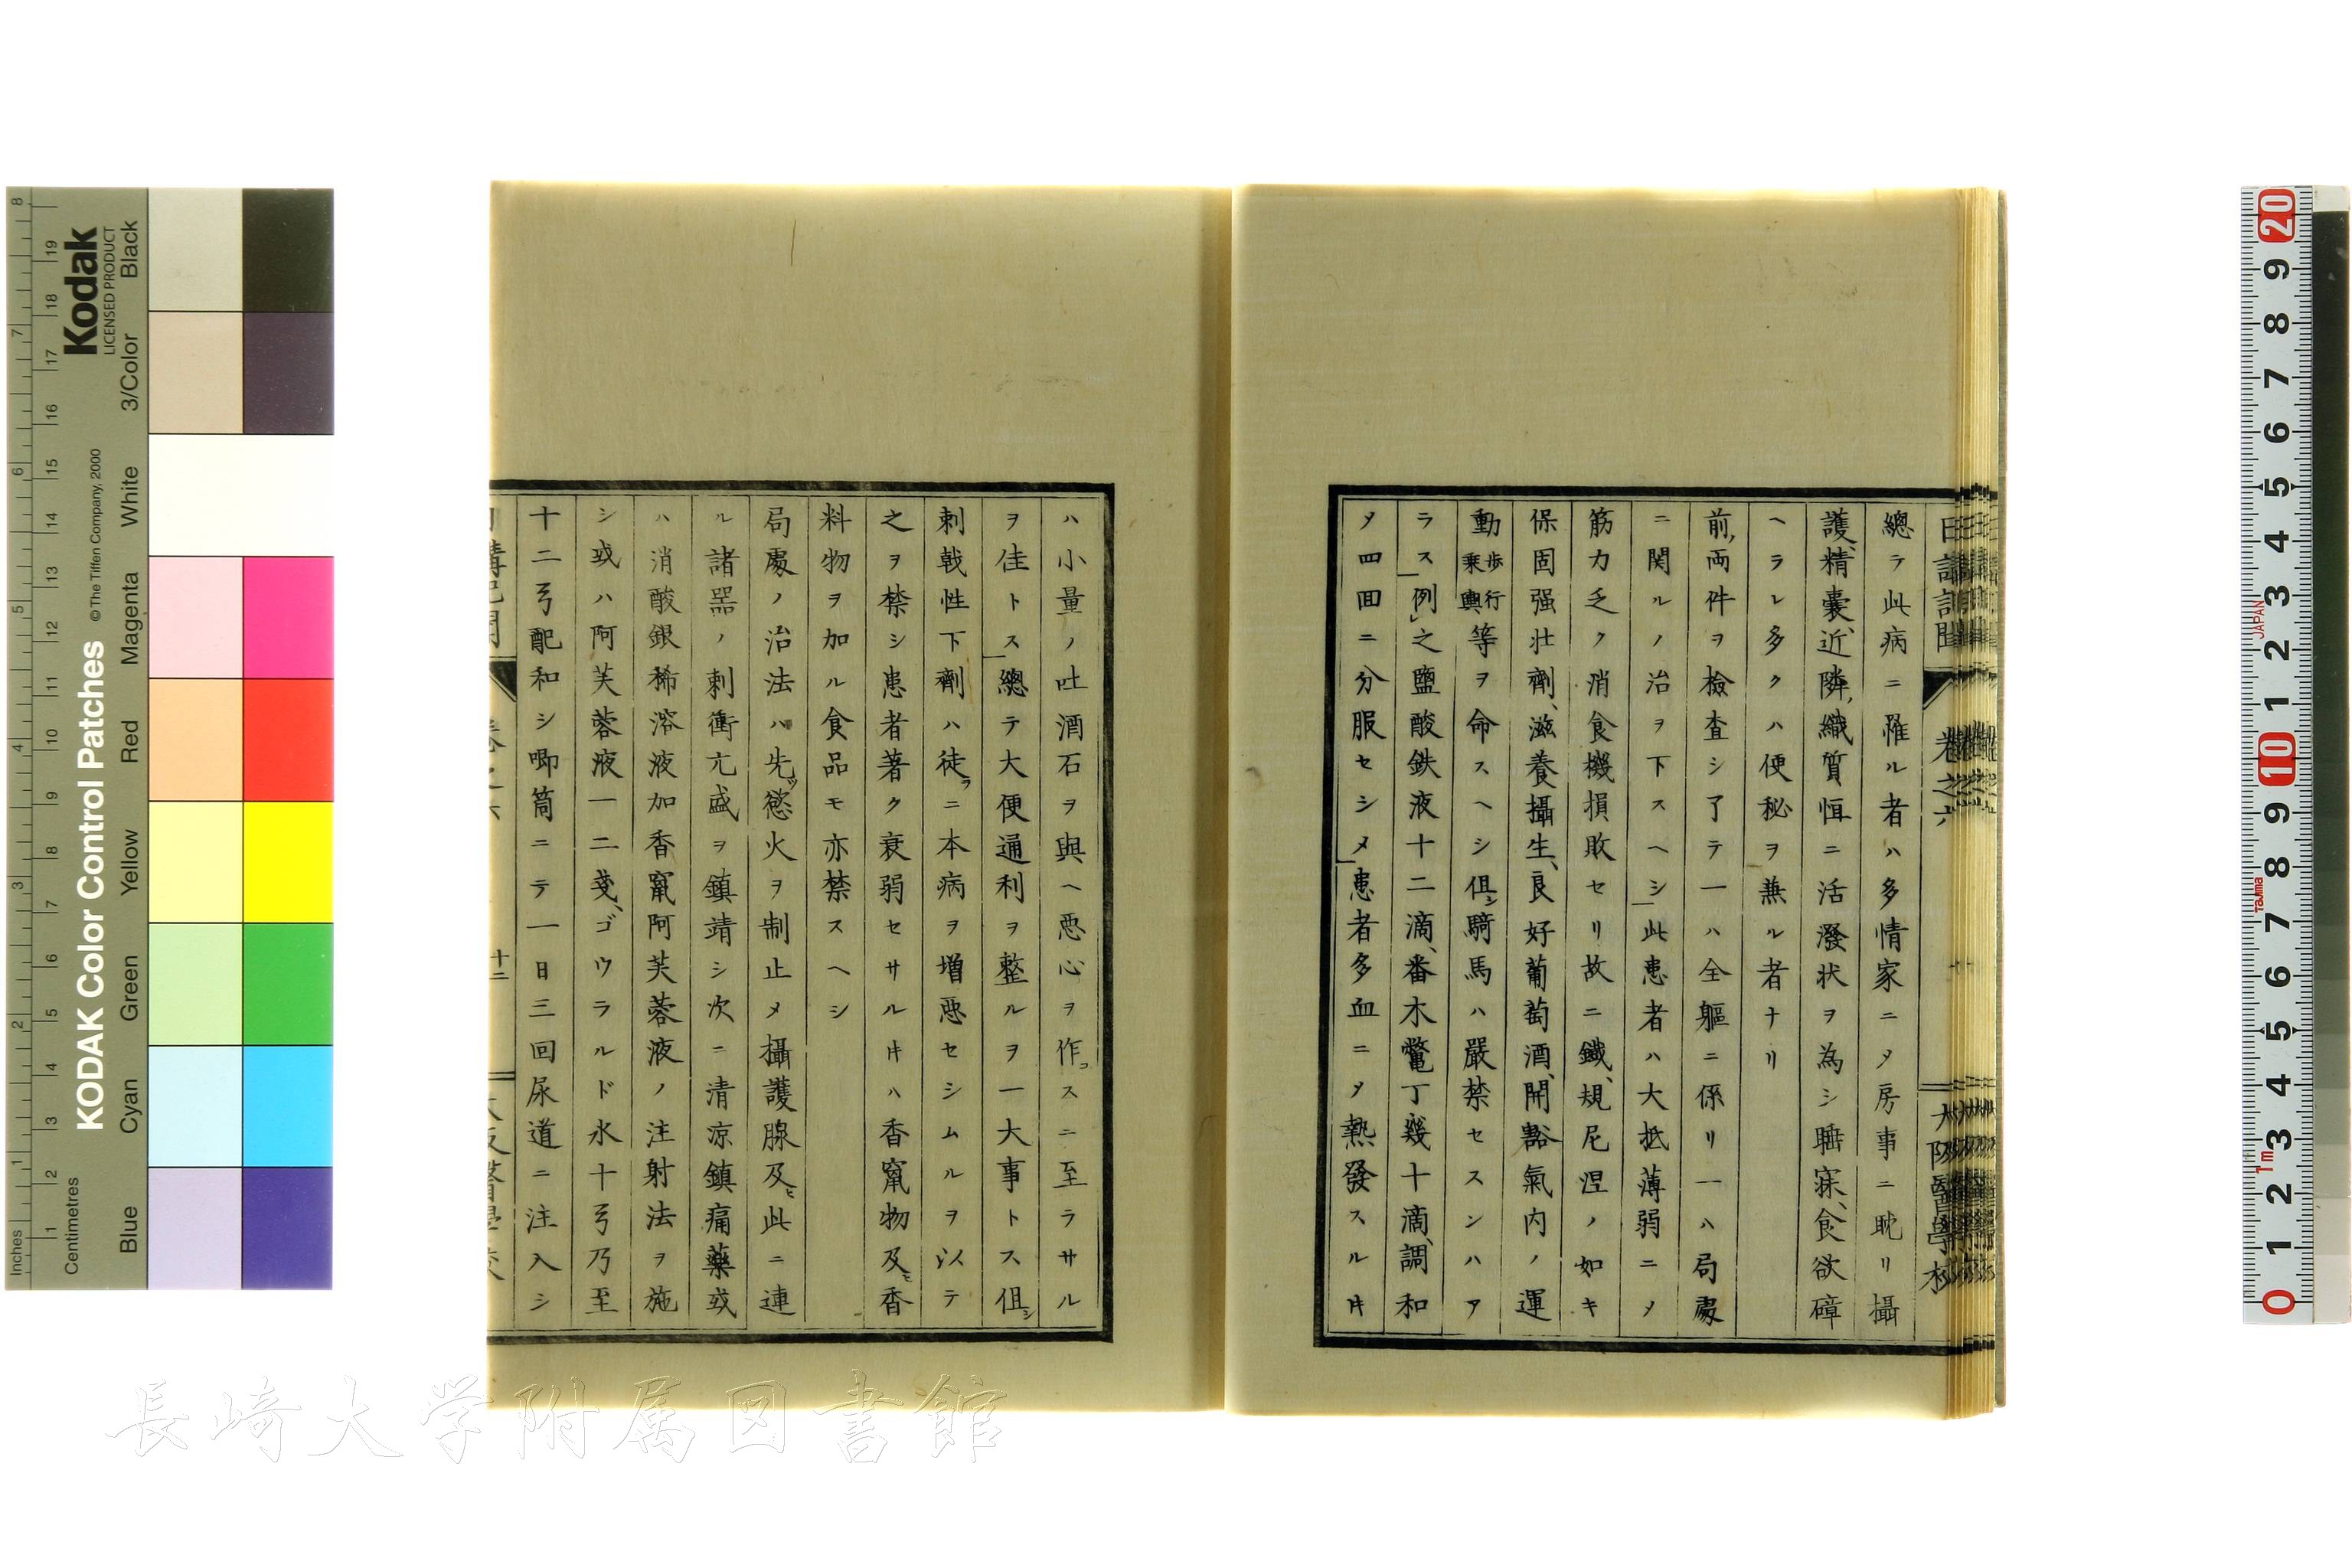 日講記聞
卷之六
大阪醫學校
總テ此病ニ罹ル者ハ多情家ニメ房事ニ耽リ攝
護、精嚢、近隣、織質恒ニ活潑状ヲ為シ睡寐、食欲碍
ヘラレ多クハ便秘ヲ無ル者ナリ
前、両件ヲ檢査シ了テ一ハ全軀ニ係リ一ハ局處
ニ関ルノ治ヲ下スヘシ此患者ハ大抵薄弱ニメ
筋力乏ク消食機損敗セリ故ニ鐵、規尼涅ノ如キ
保固强壮劑、滋養攝生、良好葡萄酒、開豁氣内ノ運
動歩行乗輿等ヲ命スヘシ但シ騎馬ハ嚴禁セスンハア
ラス例之鹽酸鉄液十二滴、番木鼈丁幾十滴、調和
メ四回ニ分服セシメ患者多血ニメ熱發スル片
ハ小量ノ吐酒石ヲ與ヘ悪心ヲ作スニ至ラサル
ヲ佳トス總テ大便通利ヲ整ルヲ一大事トス但シ
刺戟性下劑ハ徒ラニ本病ヲ増悪セシムルヲ以テ
之ヲ禁シ患者著ク衰弱セサル片ハ香竄物及ヒ香
料物ヲ加ル食品モ亦禁スヘシ
局處ノ治法ハ先ツ慾火ヲ制止メ攝護腺及ヒ此ニ連
ル諸噐ノ刺衝亢盛ヲ鎮靖シ次ニ清凉鎮痛藥或
ハ消酸銀稀溶液加香竄阿芙蓉液ノ注射法ヲ施
シ或ハ阿芙蓉液一二戔、ゴウラルド水十弓乃至
十二弓配和シ喞筒ニテ一日三回尿道ニ注入シ
十二
長崎大学附属図書館
Kodak
LICENSED PRODUCT
KODAK Color Control Patches
© The Tiffen Company, 2000
Inches
Centimetres
Blue Cyan Green Yellow Red Magenta White 3/Color Black
JAPAN
Tajima
1m